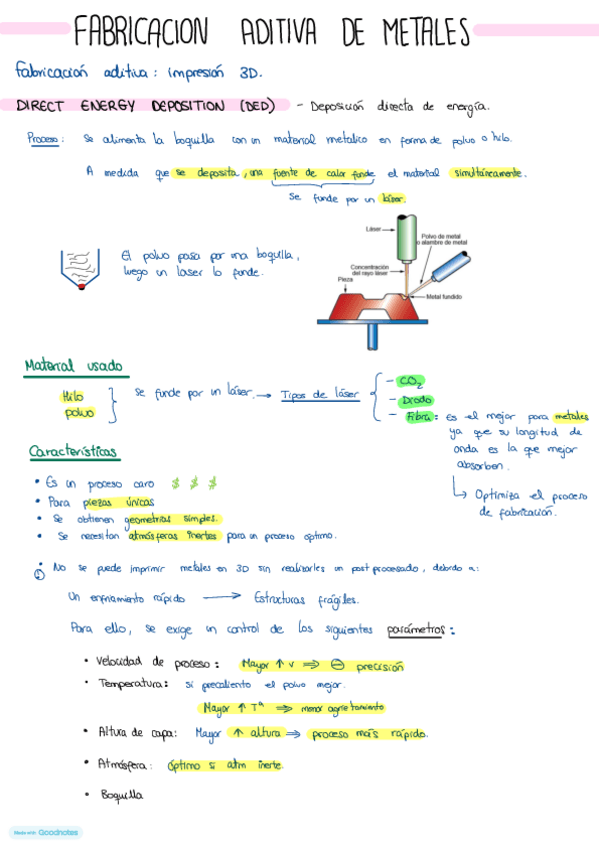 FABRICACION ADITIVA DE METALES
Fabricación aditiva: impresión 3D.
DIRECT ENERGY DEPOSITION (DED) - Deposición directa de energía.
Proceso: Se alimenta la boquilla con un material metalico en forma de polvo o hilo.
A medida que se deposita, una fuente de calor funde el material simultáneamente.
Se funde por un láser.
El polvo pasa por una boquilla,
luego un laser lo funde.
Láser
Polvo de metal
o alambre de metal
Concentración
del rayo láser
Pieza
Metal fundido
Material usado
Hilo
polvo
Se funde por un láser. → Tipos de láser
- CO2
- Diodo
- Fibra: es el mejor para metales
ya que su longitud de
onda es la que mejor
absorben.
↳ Optimiza el proceso
de fabricación.
Características
• Es un proceso caro $ $ $
• Para piezas únicas
• Se obtienen geometrias simples.
• Se necesitan atmósferas inertes para un proceso optimo.
No se puede imprimir metales en 3D sin realizarles un post procesado, debido a:
Un enfriamiento rápido → Estructuras frágiles.
Para ello, se exige un control de los siguientes parámetros:
• Velocidad de proceso: Mayor ↑ v ⇒ ⊖ precisión
• Temperatura: si precaliento el polvo mejor.
Mayor ↑ Tª ⇒ menor agrietamiento
• Altura de capa: Mayor ↑ altura ⇒ proceso más rápido.
• Atmósfera: Óptimo si atm inerte.
• Boquilla
Made with Goodnotes